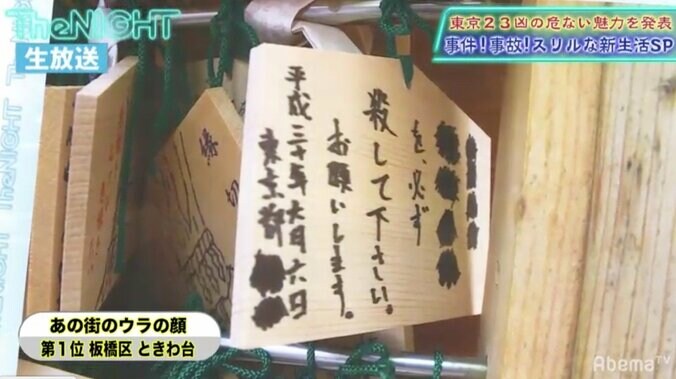 The NIGHT
生放送
東京23凶の危ない魅力を発表
事件!事故!スリルな新生活SP
を、必ず
殺して下さい。
お願いします。
平成三十年六月六日
東京都
縁切
あの街のウラの顔
第1位 板橋区 ときわ台
AbemaTV